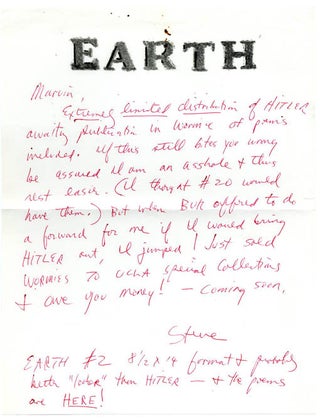 EARTH
Marvin,
Extremely limited distribution of HITLER
awaits publication in Wormwood of poems
included. If this still bites you wrong
be assured I am an asshole & thus
rest easier. (I thought #20 would
have them.) But when BUK offered to do
a forward for me if I would bring
HITLER out, I jumped! Just sold
WORMIES TO UCLA special collections
& owe you money! — coming soon.
Steve
EARTH #2 8 1/2 x 14 format & probably
better "later" than HITLER — & the poems
are HERE!